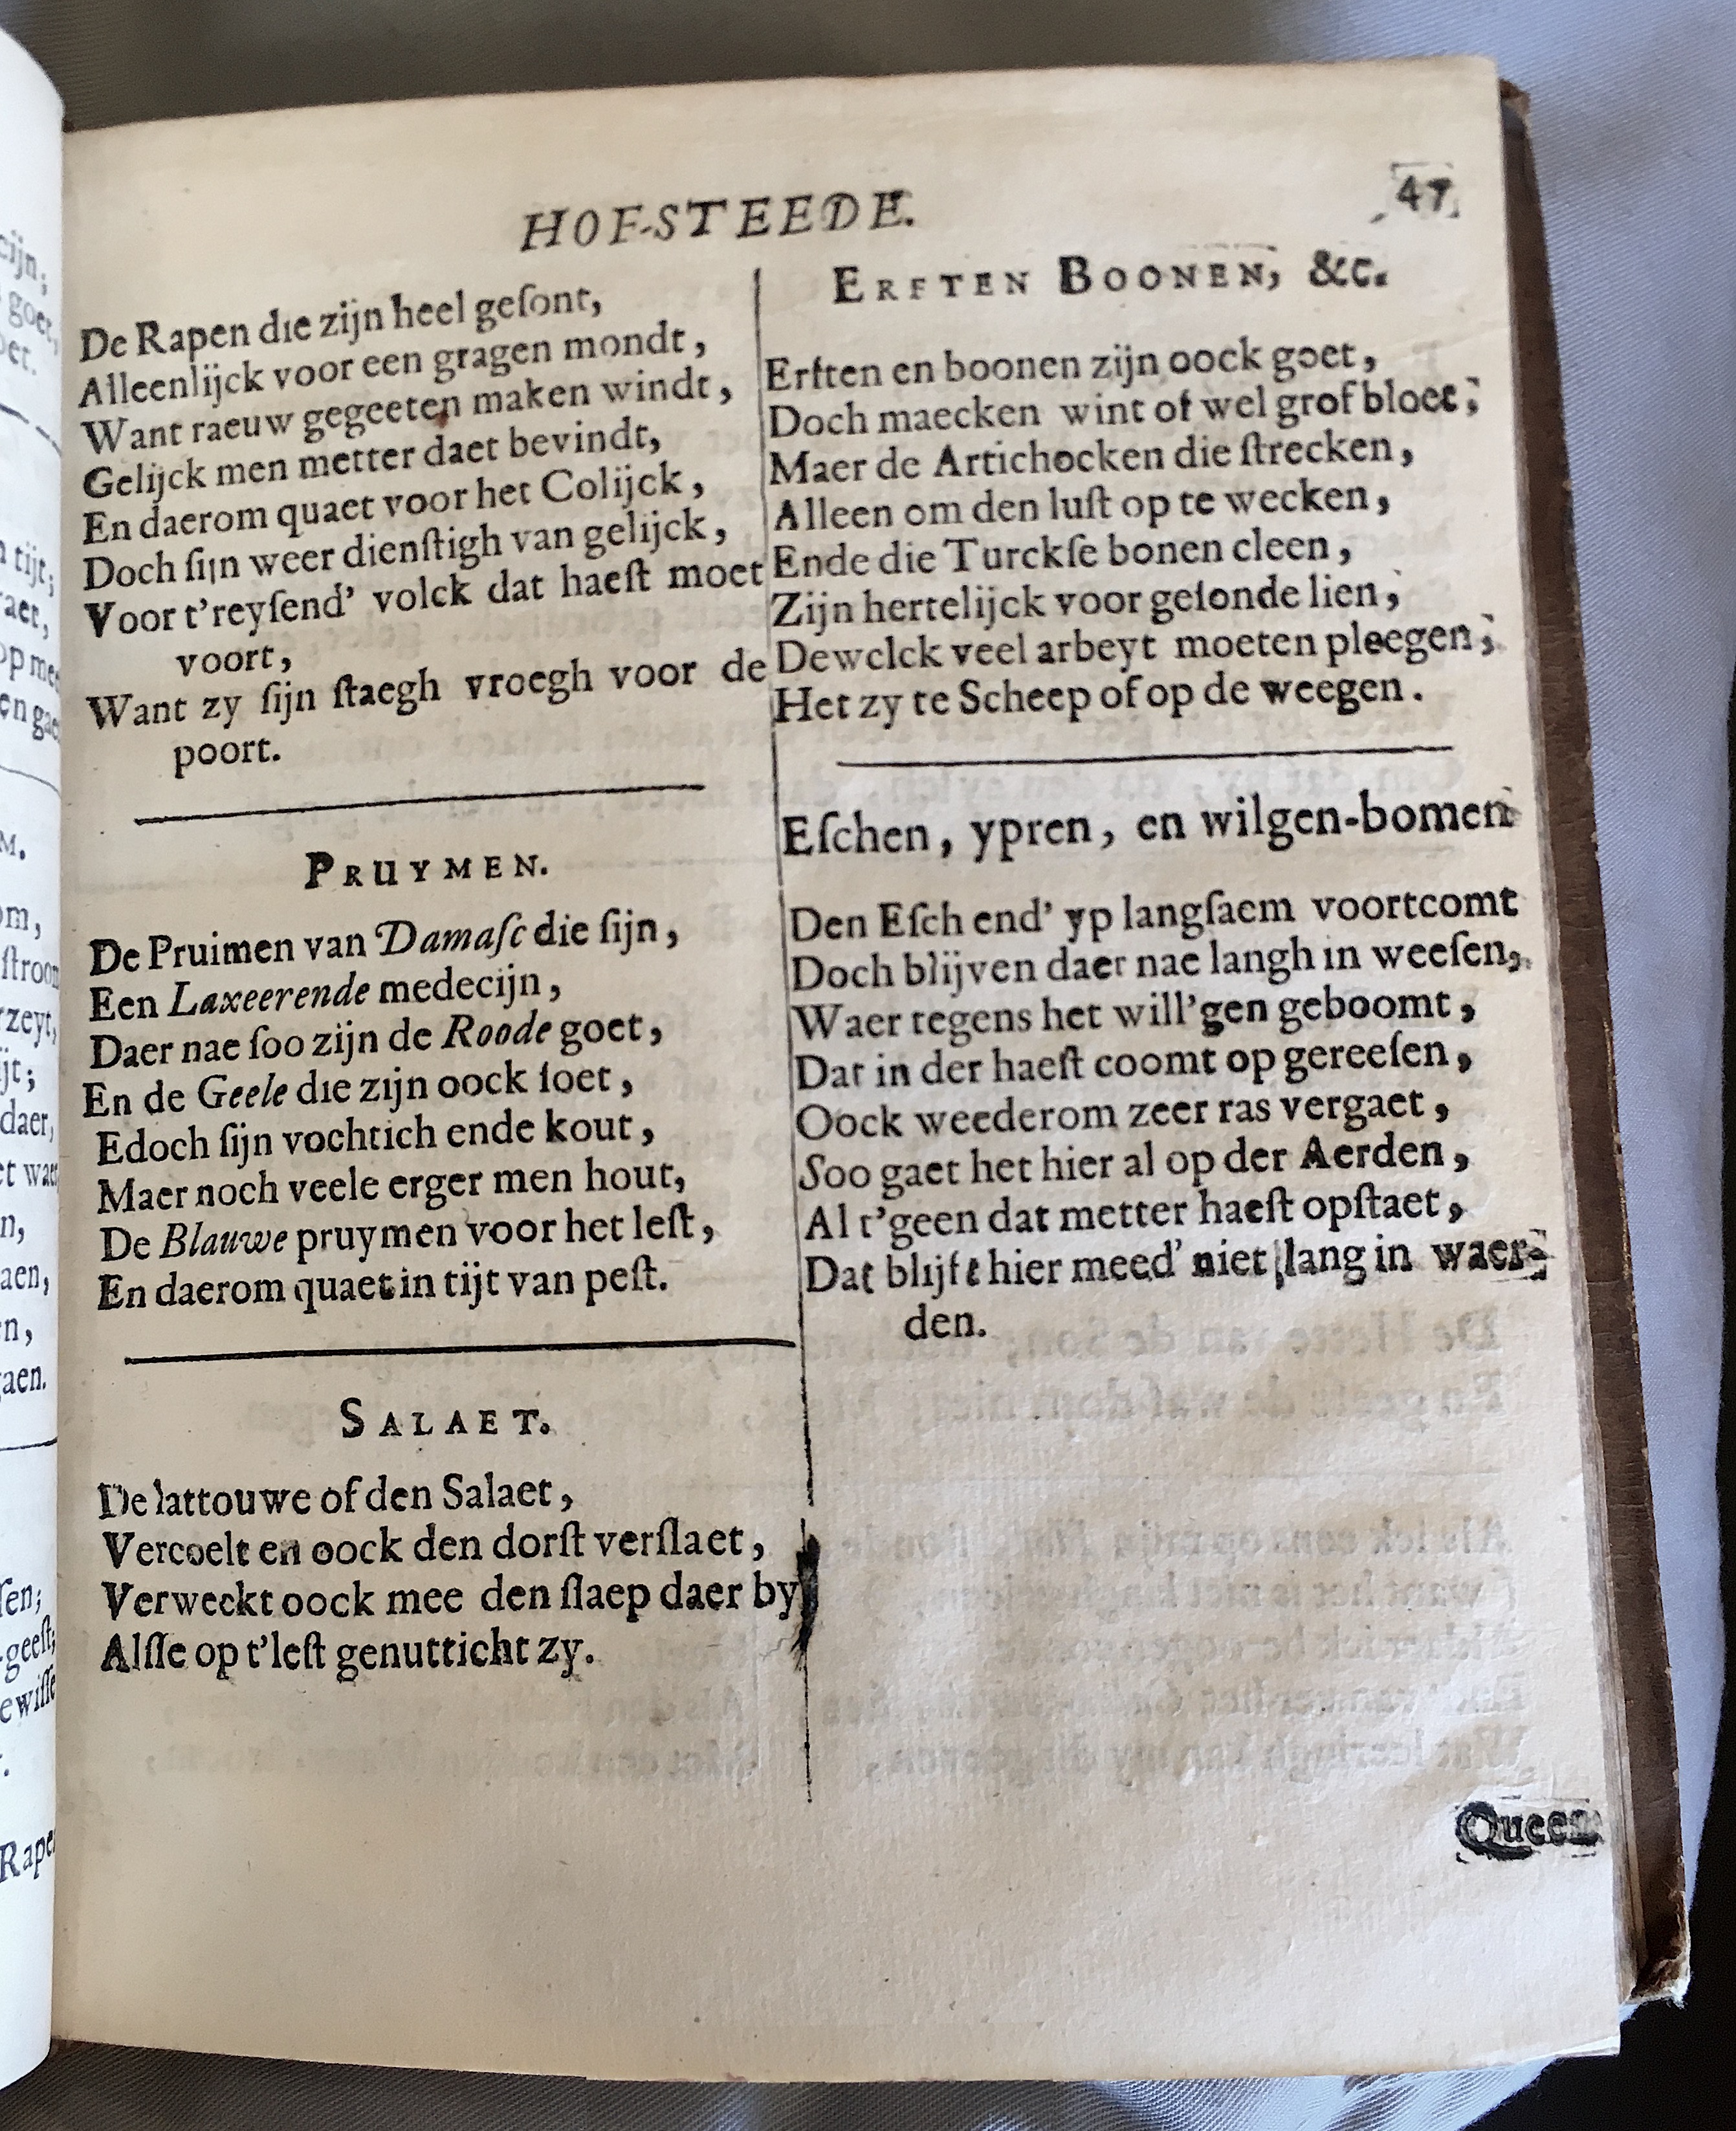 HOF-STEEDE.
47
De Rapen die zijn heel geſont,
Alleenlijck voor een gragen mondt,
Want raeuw gegeeten maken windt,
Gelijck men metter daet bevindt,
En daerom quaet voor het Colijck,
Doch ſijn weer dienſtigh van gelijck,
Voor t'reyſend' volck dat haeſt moet
voort,
Want zy ſijn ſtaegh vroegh voor de
poort.
PRUYMEN.
De Pruimen van Damaſc die ſijn,
Een Laxeerende medecijn,
Daer nae ſoo zijn de Roode goet,
En de Geele die zijn oock ſoet,
Edoch ſijn vochtich ende kout,
Maer noch veele erger men hout,
De Blauwe pruymen voor het leſt,
En daerom quaet in tijt van peſt.
SALAET.
De lattouwe of den Salaet,
Vercoelt en oock den dorſt verſlaet,
Verweckt oock mee den ſlaep daer by
Alſſe op t'leſt genutticht zy.
ERFTEN BOONEN, &c.
Erften en boonen zijn oock goet,
Doch maecken wint of wel grof bloet;
Maer de Artichocken die ſtrecken,
Alleen om den luſt op te wecken,
Ende die Turckſe bonen cleen,
Zijn hertelijck voor geſonde lien,
Dewelck veel arbeyt moeten pleegen,
Het zy te Scheep of op de weegen.
Eſchen, ypren, en wilgen-bomen
Den Eſch end' yp langſaem voortcomt
Doch blijven daer nae langh in weeſen,
Waer tegens het will'gen geboomt,
Dat in der haeſt coomt op gereeſen,
Oock weederom zeer ras vergaet,
Soo gaet het hier al op der Aerden,
Al t'geen dat metter haeſt opſtaet,
Dat blijft hier meed' niet lang in waer-
den.
Queen